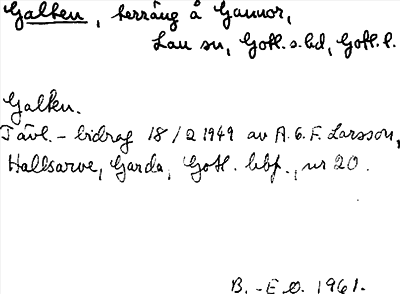 Galken, terräng å Gannor,
Lau sn, Gotl. s. hd, Gotl. l.
Galken.
Tävl. - bidrag 18/2 1949 av A. G. F. Larsson,
Hallsarve, Garda, Gotl. hbf., nr 20.
B. - E. O. 1961.